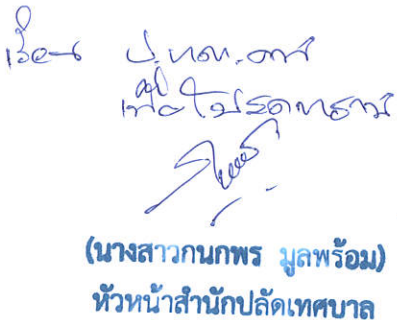 เรียน ป.ทต.
เพื่อโปรดทราบ
(นางสาวกนกพร มูลพร้อม)
หัวหน้าสำนักปลัดเทศบาล